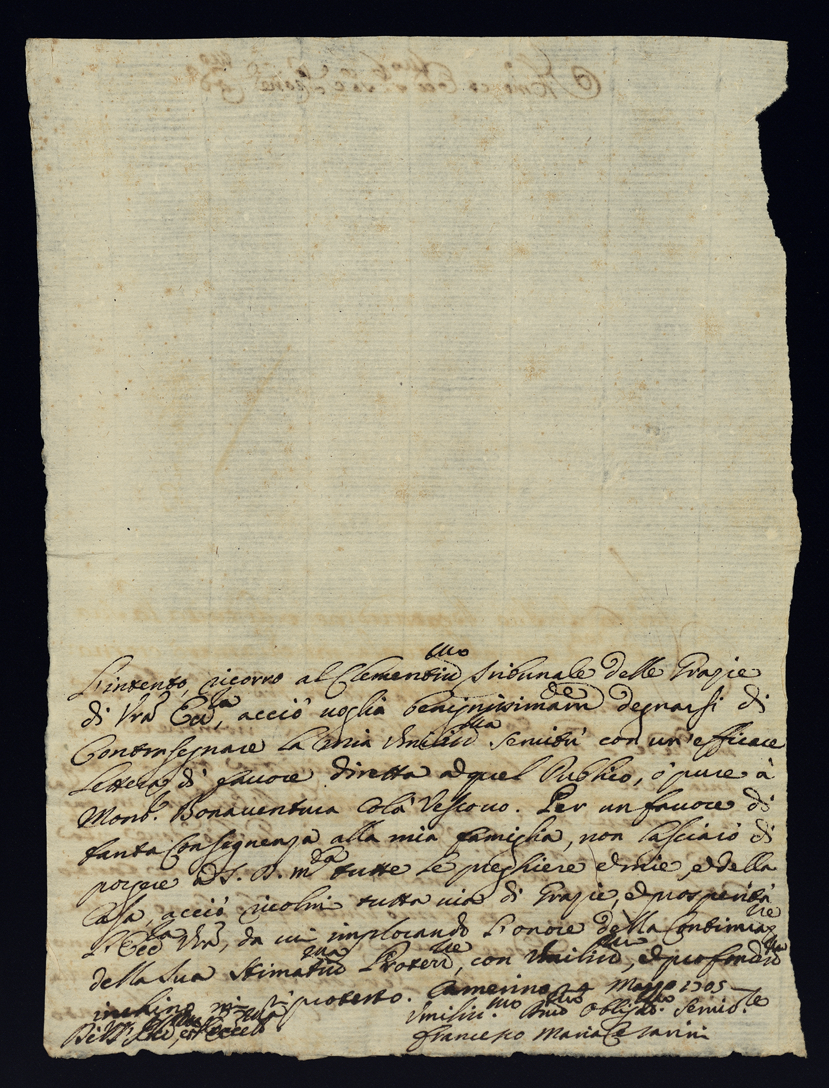 L'intento, ricorro al Clementiu.mo Tribunale delle Grazie
di Vra Ecc.a, acciò voglia benignissimam.de degnarsi di
Contrasegnare la mia Umiliu.ma servitù con un'efficace
Lettera di favore diretta à quel Publico, ò pure à
Mons.r Bonaventura colà Vescovo. Per un favore di
tanta Consegnenza alla mia famiglia, non lasciarò di
porgere à S. D. M.da tutte le preghiere e mie, e della
Casa, acciò ricolmi tutta via di Grazie, e prosperità
L'Ecc.za Vra, da cui implorando l'onore della Continua
della sua Stimatiu.ma Protez.ne, con Umiliu.mo, e profondiu.mo
inchino mi protesto. Camerino 4 Marzo 1705
Umiliu.mo Obligat.mo Servid.re
Francesco Maria